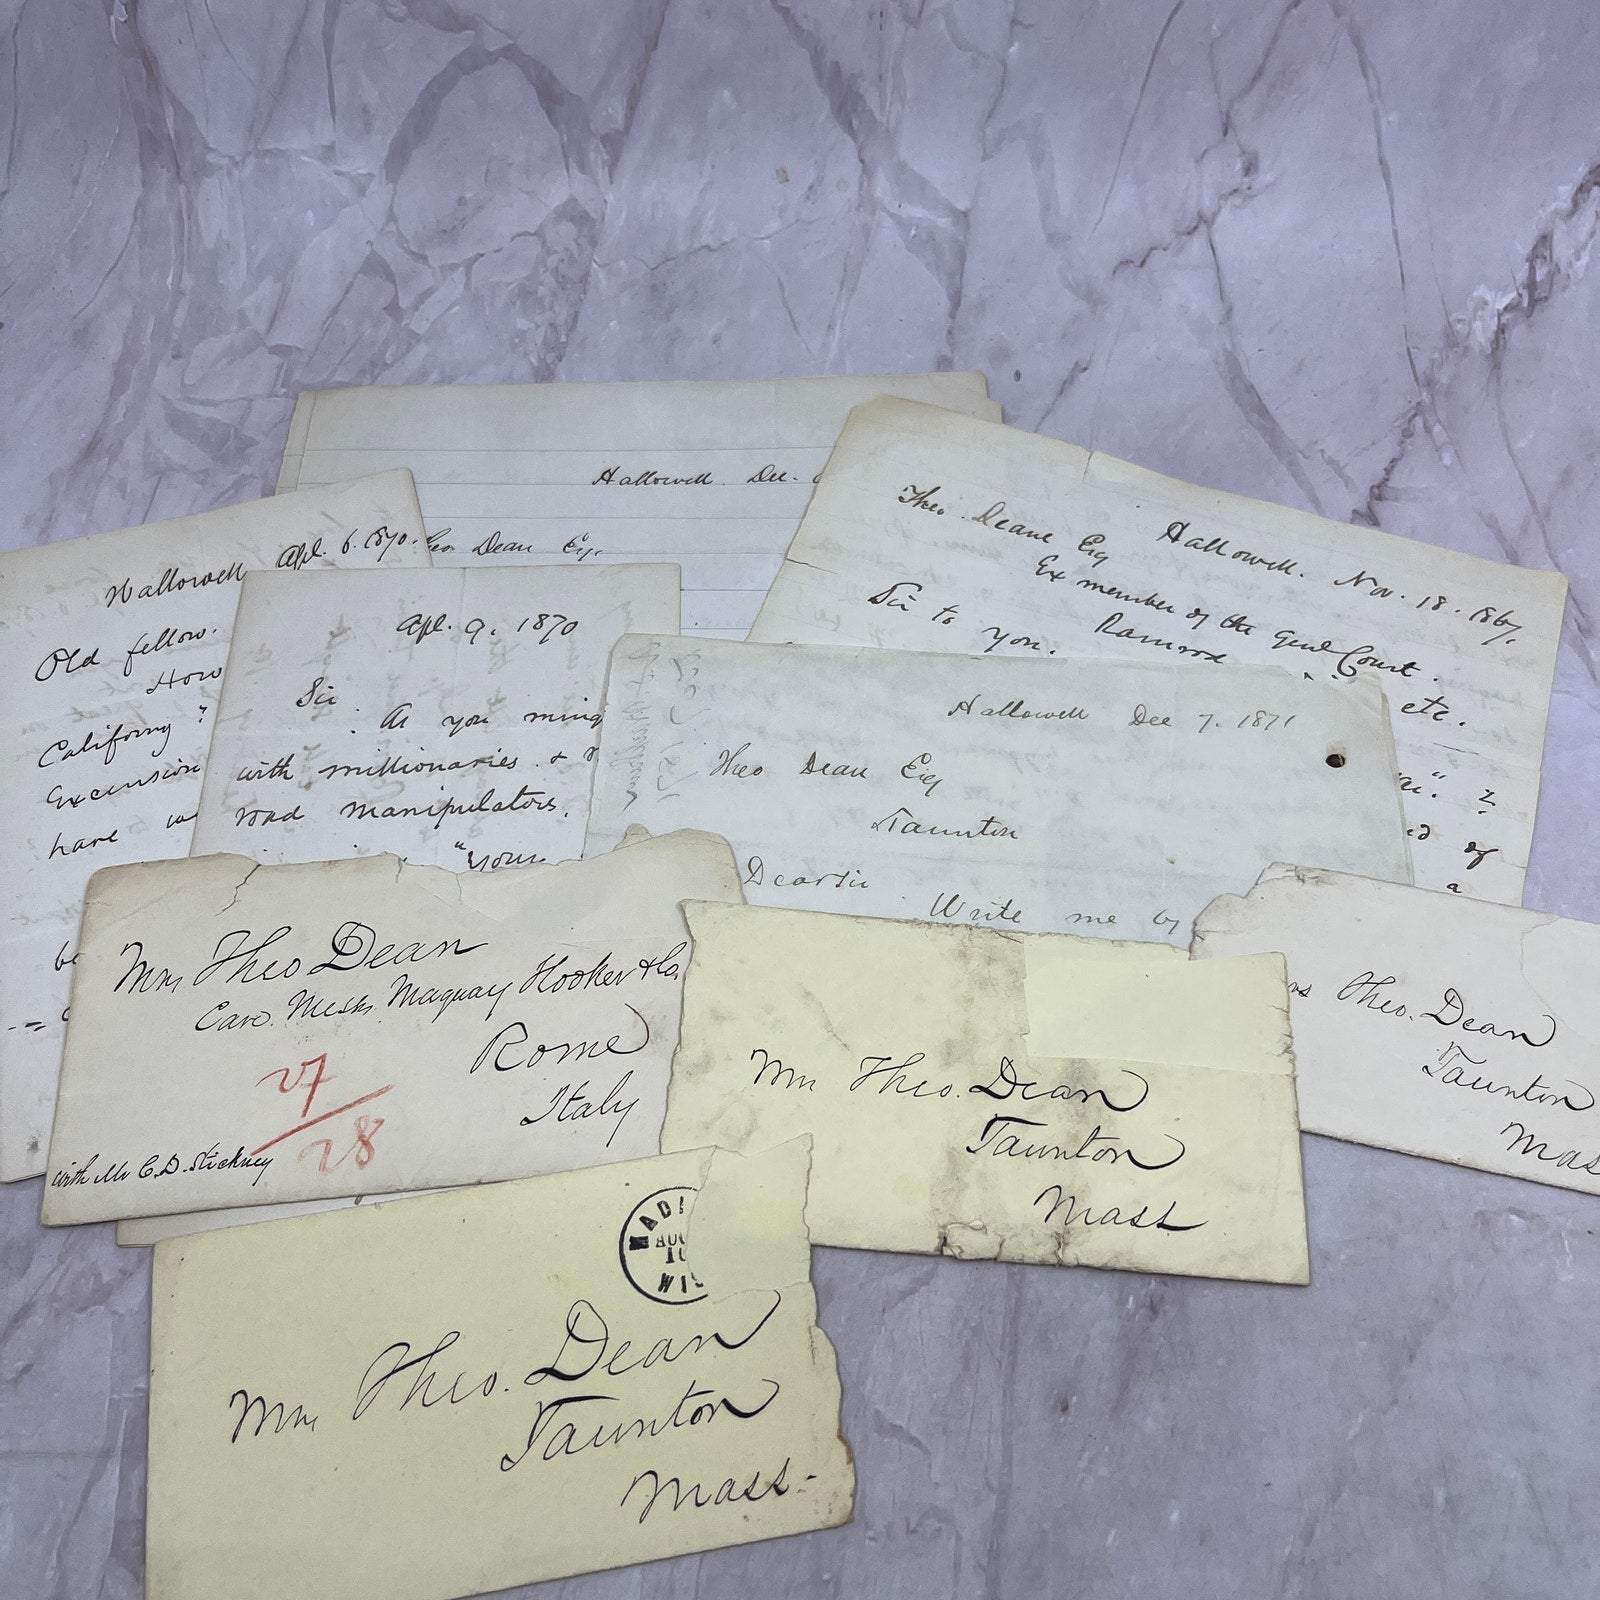 Hallowell Dec.
Theo Dean Esq.
Theo. Deane Esq
Hallowell. Nov. 18. 1867.
Ex member of the Genl Court.
Ramrod etc.
Sir to you.
of
a
Hallowell Apl. 6. 1870.
Old fellow.
How
California?
Excursion
have
be
Apl. 9. 1870
Sir. As you ming
with millionaries &
road manipulators.
"Your
Hallowell Dec 7. 1871
Theo Dean Esq
Taunton
Dear Sir
Write me by
Mrs Theo Dean
Care Messrs Maquay Hooker & Co.
Rome
Italy
27/28
with Mr C. D. Stickney
Mrs Theo. Dean
Taunton
Mass
Theo. Dean
Taunton
Mas
MADI
AUG
10
WIS
Mrs Theo. Dean
Taunton
Mass-